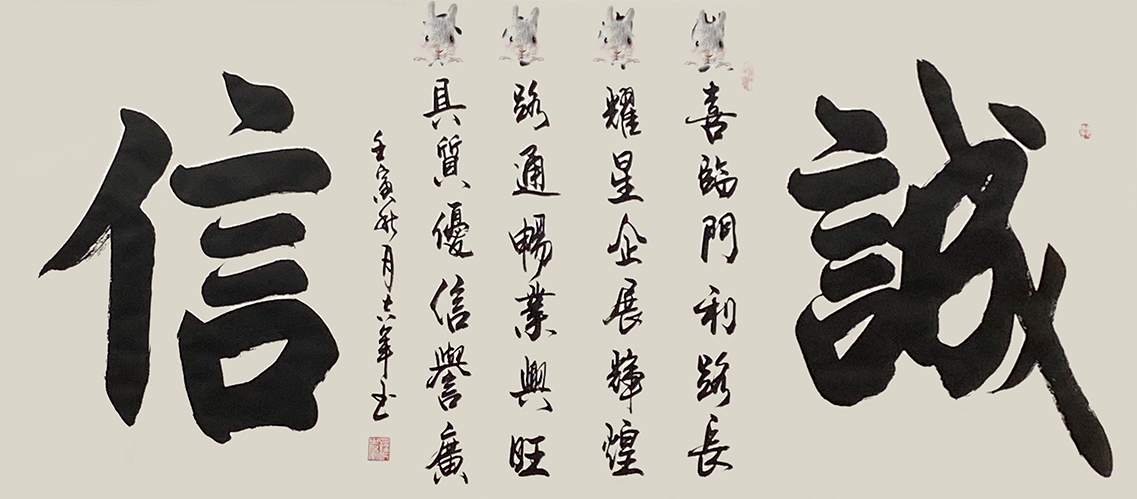 誠
喜臨門利路長
耀星企展輝煌
路通暢業興旺
具質優信譽廣
壬寅秋月年书
信